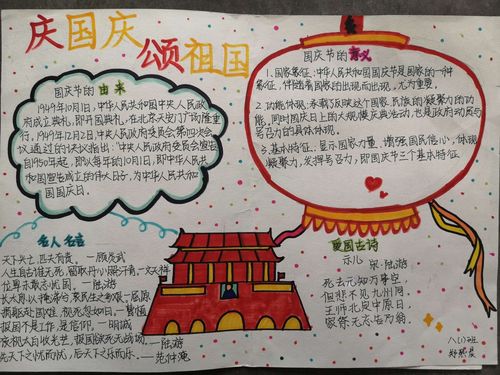 庆国庆
颂祖国
国庆节的由来
1949年10月1日,中华人民共和国中央人民政
府成立典礼,即开国典礼,在北京天安门广场隆重
行。1949年12月2日,中央人民政府委员会第四次会
议通过的决议指出:"中央人民政府委员会宣告
自1950年起,即以每年的10月1日,即中华人民共
和国宣告成立的伟大日子,为中华人民共和
国国庆日。
国庆节的意义
1.国家象征:中华人民共和国国庆节是国家的一种
象征,伴随着国家的出现而出现,尤为重要
2.功能体现,承载了反映这个国家、民族的凝聚力的功
能,同时国庆日上的大规模庆典活动,也是政府动员与
号召力的具体体现。
3.基本特征、显示国家力量、增强国民信心,体现
凝聚力,发挥号召力,即国庆节三个基本特征
名人名言
天下兴亡,匹夫有责。—顾炎武
人生自古谁无死,留取丹心照汗青。—文天祥
位卑未敢忘忧国。—陆游
长太息以掩涕兮,哀民生之多艰—屈原
捐躯赴国难,视死忽如归。—曹植
报国不是工作,是信仰。
寂视大白收光芒,报国欲死无战场。—陆游
先天下之忧而忧,后天下之乐而乐。—范仲淹
爱国古诗
示儿 宋·陆游
死去元知万事空,
但悲不见九州同
王师北定中原日,
家祭无忘告乃翁。
八(1)班